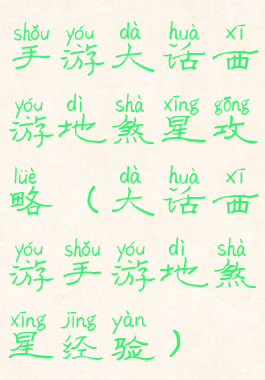 shǒu yóu dà huà xī
手游大话西
yóu dì shà xīng gōng
游地煞星攻
lüè dà huà xī
略（大话西
yóu shǒu yóu dì shà
游手游地煞
xīng jīng yàn
星经验）